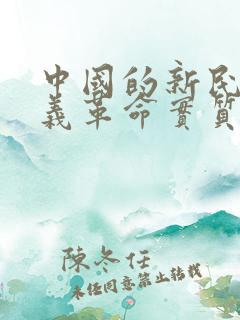 中國的新民
義革命實質
陳冬任
未任同意禁止转载